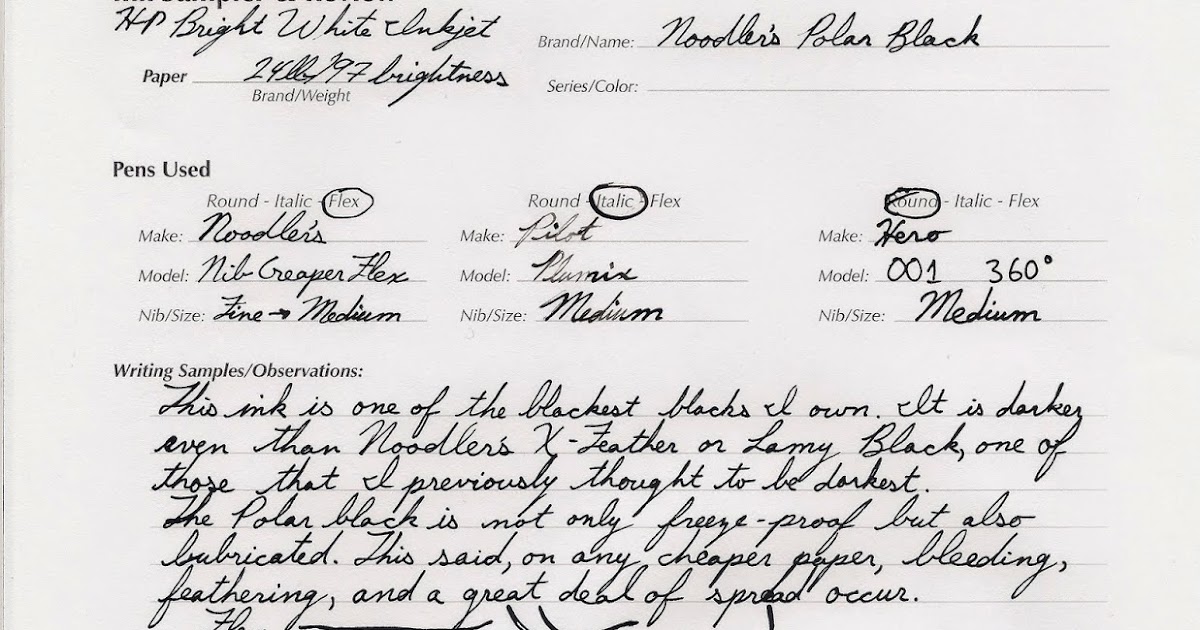 Ink Sampler & Review
HP Bright White Inkjet
Brand/Name: Noodler's Polar Black
Paper 24lb/97 brightness
Brand/Weight
Series/Color:
Pens Used
Round - Italic - Flex
Round - Italic - Flex
Round - Italic - Flex
Make: Noodler's
Make: Pilot
Make: Hero
Model: Nib Creaper Flex
Model: Plumix
Model: 001 360°
Nib/Size: Fine → Medium
Nib/Size: Medium
Nib/Size: Medium
Writing Samples/Observations:
This ink is one of the blackest blacks I own. It is darker
even than Noodler's X-Feather or Lamy Black, one of
those that I previously thought to be darkest.
The Polar black is not only freeze-proof but also
lubricated. This said, on any cheaper paper, bleeding,
feathering, and a great deal of spread occur.
Flex